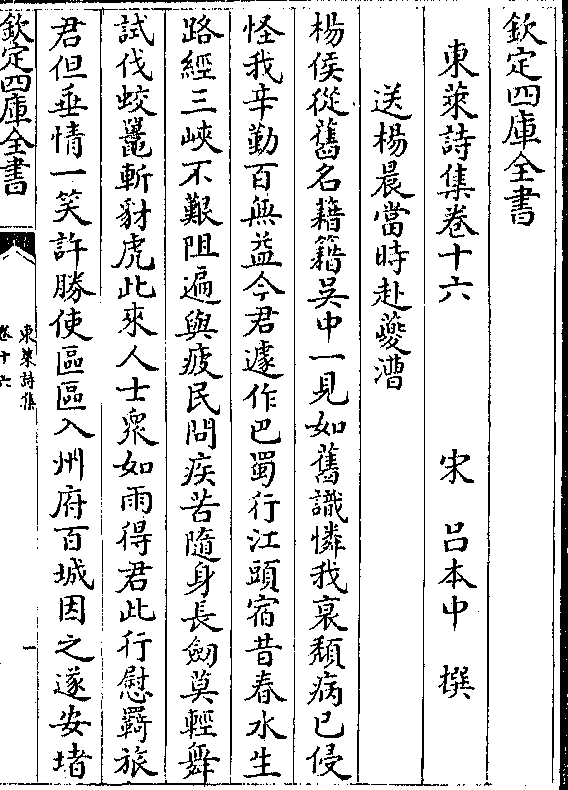 欽定四庫全書
東萊詩集卷十六　宋　呂本中　撰
送楊晨當時赴夔漕
楊侯從舊名藉籍吳中一見如舊識憐我衰頽病已侵
怪我辛勤百無益今君遽作巴蜀行江頭宿昔春水生
路經三峽不艱阻遍與疲民問疾苦隨身長劒莫輕舞
試伐蛟鼉斬豺虎此來人士衆如雨得君此行慰羇旅
君但垂情一笑許勝使區區入州府百城因之遂安堵
欽定四庫全書
東萊詩集
卷十六
一